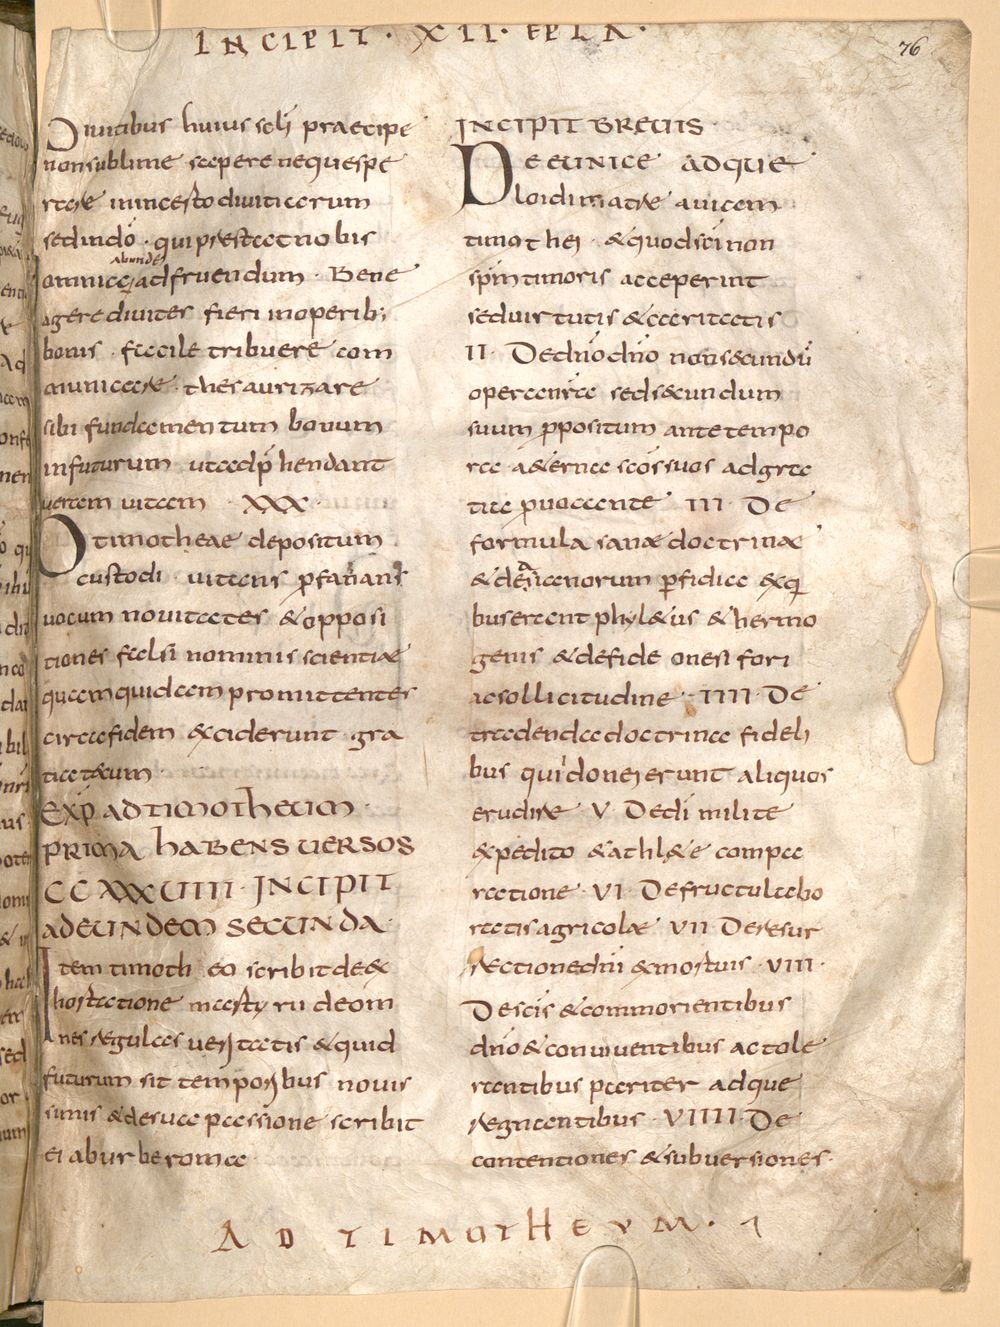 INCIPIT · XII · EPLA ·
76
Divitibus huius scli praecipe
non sublime sapere neque spe
rare in incerto divitiarum
sed in dō · qui praestat nobis
omnia abunde ad fruendum · Bene
agere divites fieri in operib;
bonis · facile tribuere com
municare · thesaurizare
sibi fundamentum bonum
in futurum ut adp̄hendant
veram vitam · XXX ·
O timotheae depositum
custodi · vitans p̄fanans
vocum novitates & opposi
tiones falsi nominis scientiae
quam quidam promittentes
circa fidem exciderunt gra
tia tecum ·
EXP̄ AD TIMOTHEUM ·
PRIMA HABENS VERSOS
CCXXXVIIII · INCIPIT
AD EUNDEM SECUNDA ·
Item timotheo scribit de ex
hortatione martyrii de om
nes regulas veritatis & quid
futurum sit temporibus novis
simis & de sua passione scribit
ei ab urbe roma
INCIPIT BREVIS
DE EUNICE ADQUE
loidi matre aut cem
timothei · & quod sc̄i non
sp̄m timoris acceperint
sed virtutis & caritatis
II · De dn̄o dn̄o non secundū
opera nr̄a sed secundum
suum p̄positum ante tempo
ra aeterna sc̄os suos ad gra
tia p̄vocante III · De
formula sanae doctrinae
& de asianorum p̄fidia ex q
bus erant phyletus & hermo
genis & de fide onesifori
ac sollicitudine · IIII · De
tradenda doctrina fideli
bus qui idonei erunt aliquos
erudire · V · De di milite
expedito & athlete compa
ratione · VI · De fructu labo
ratis agricolae VII · De resur
rectione dn̄i & mortuis · VIII ·
De scis & commorientibus
dn̄o & conviventibus ac tole
rantibus pariter adque
regnantibus · VIIII · De
contentiones & subversiones ·
AD TIMOTHEUM · I